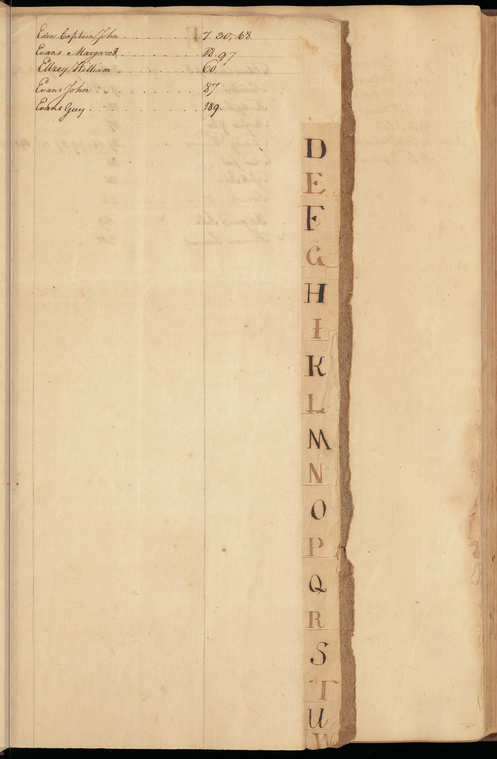 Eden Captain John . . . . . . . . . . 7. 30, 68
Evans Margaret . . . . . . . . . . 97
Ellzey William . . . . . . . . . . 60
Evans John . . . . . . . . . . 37
Evans Guy . . . . . . . . . . 189
D
E
F
G
H
I
K
L
M
N
O
P
Q
R
S
T
U
W